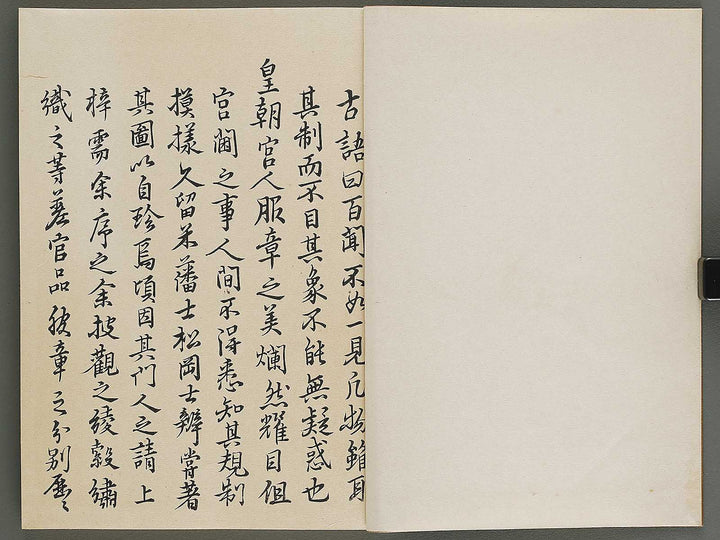 古語曰百聞不如一見凡物雖耳
其制而不目其象不能無疑惑也
皇朝宮人服章之美爛然耀目但
宮閫之事人間不得悉知其規制
摸樣久留米藩士松岡士辨嘗著
其圖以自珍焉頃因其門人之請上
梓需余序之余披觀之綾縠繡
織之等差官品服章之分別歷々